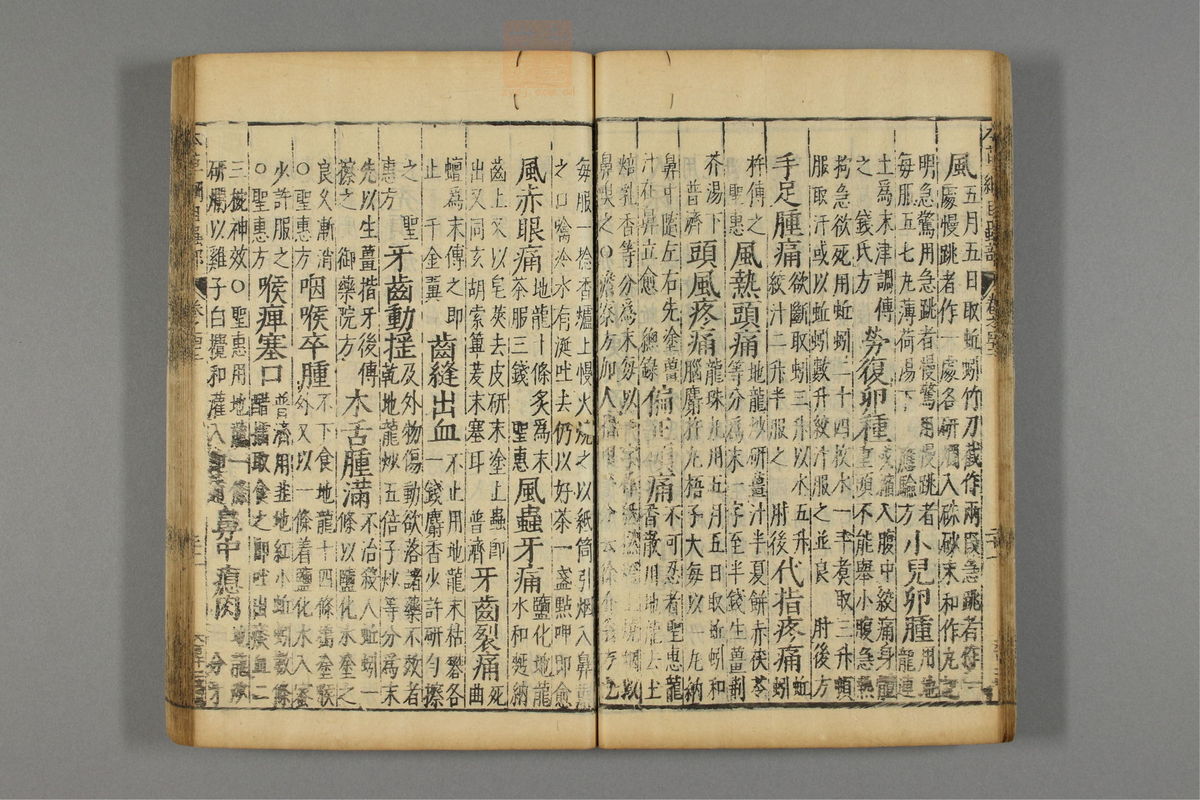 風
五月五日取蚯蚓竹刀截作兩段急跳者作一
處慢跳者作一處各研爛入硃砂末和作丸記
明急驚用急跳者慢驚用慢跳者
每服五七丸薄荷湯下 應驗方
小兒卵腫
用地
龍連
土為末津調傅
之 錢氏方
勞復卵腫
或縮入腹中絞痛身體
重頭不能舉小腹急熱
拘急欲死用蚯蚓二十四枚水一斗煮取三升頓
服取汗或以蚯蚓數升絞汁服之並良 肘後方
手足腫痛
欲斷取蚓三升以水五升
絞汁二升半服之 肘後
代指疼痛
蚯
蚓
杵傅之
聖惠
風熱頭痛
地龍炒研薑汁半夏餅赤茯苓
等分為末一字至半錢生薑荊
芥湯下
普濟
頭風疼痛
龍珠丸用五月五日取蚯蚓和
腦麝杵丸梧子大每以一丸納
鼻中隨左右先塗薑
汁在鼻立愈 總錄
偏正頭痛
不可忍者聖惠龍
香散用地龍去土
焙乳香等分為末每以一字作紙撚燈上燒烟以
鼻嗅之○澹寮方加人指甲等分云徐介翁方也
每服一捻香爐上慢火燒之以紙筒引烟入鼻熏
之口噙冷水有涎吐去仍以好茶一盞點呷即愈
風赤眼痛
地龍十條炙為末
茶服三錢 聖惠
風蟲牙痛
鹽化地龍
水和麪納
齒上又以皂莢去皮研末塗上蟲即
出又同玄胡索蓽茇末塞耳 普濟
牙齒裂痛
死
曲
蟺為末傅之即
止 千金翼
齒縫出血
不止用地龍末枯礬各
一錢麝香少許研勻擦
之 聖
惠方
牙齒動搖
及外物傷動欲落諸藥不效者
乾地龍炒五倍子炒等分為末
先以生薑揩牙後傅
擦之 御藥院方
木舌腫滿
不治殺人蚯蚓一
條以鹽化水塗之
良久漸消
○聖惠方
咽喉卒腫
不下食地龍十四條搗塗喉
外又以一條着鹽化水入蜜
少許服之
○聖惠方
喉痺塞口
普濟用韭地紅小蚯蚓數條
醋擂取食之即吐出痰血二
三椀神效○聖惠用地龍一條
研爛以雞子白攪和灌入即通
鼻中瘜肉
地龍炒
一分牙